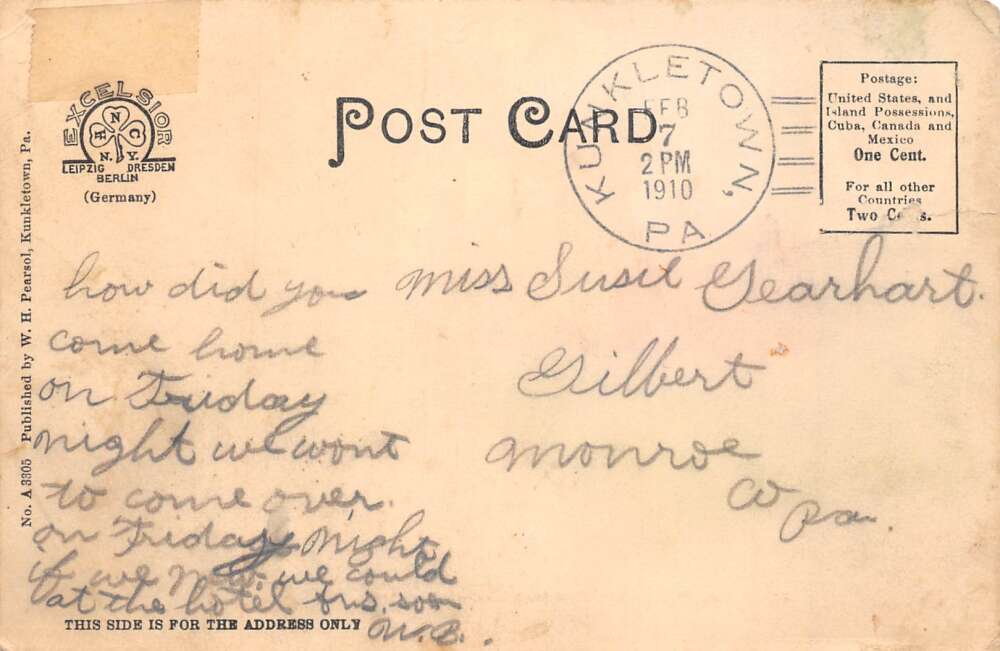 EXCELSIOR
H N C
N. Y.
LEIPZIG DRESDEN
BERLIN
(Germany)
POST CARD
KUNKLETOWN, PA
FEB
7
2 PM
1910
Postage:
United States, and
Island Possessions,
Cuba, Canada and
Mexico
One Cent.
For all other
Countries
Two C s.
No. A 3305 Published by W. H. Pearsol, Kunkletown, Pa.
how did you
come home
on Friday
night we wont
to come over
on Friday Night
if we we could
at the hotel Ans. soon
THIS SIDE IS FOR THE ADDRESS ONLY
Miss Susie Gearhart.
Gilbert
Monroe
Co
Pa.